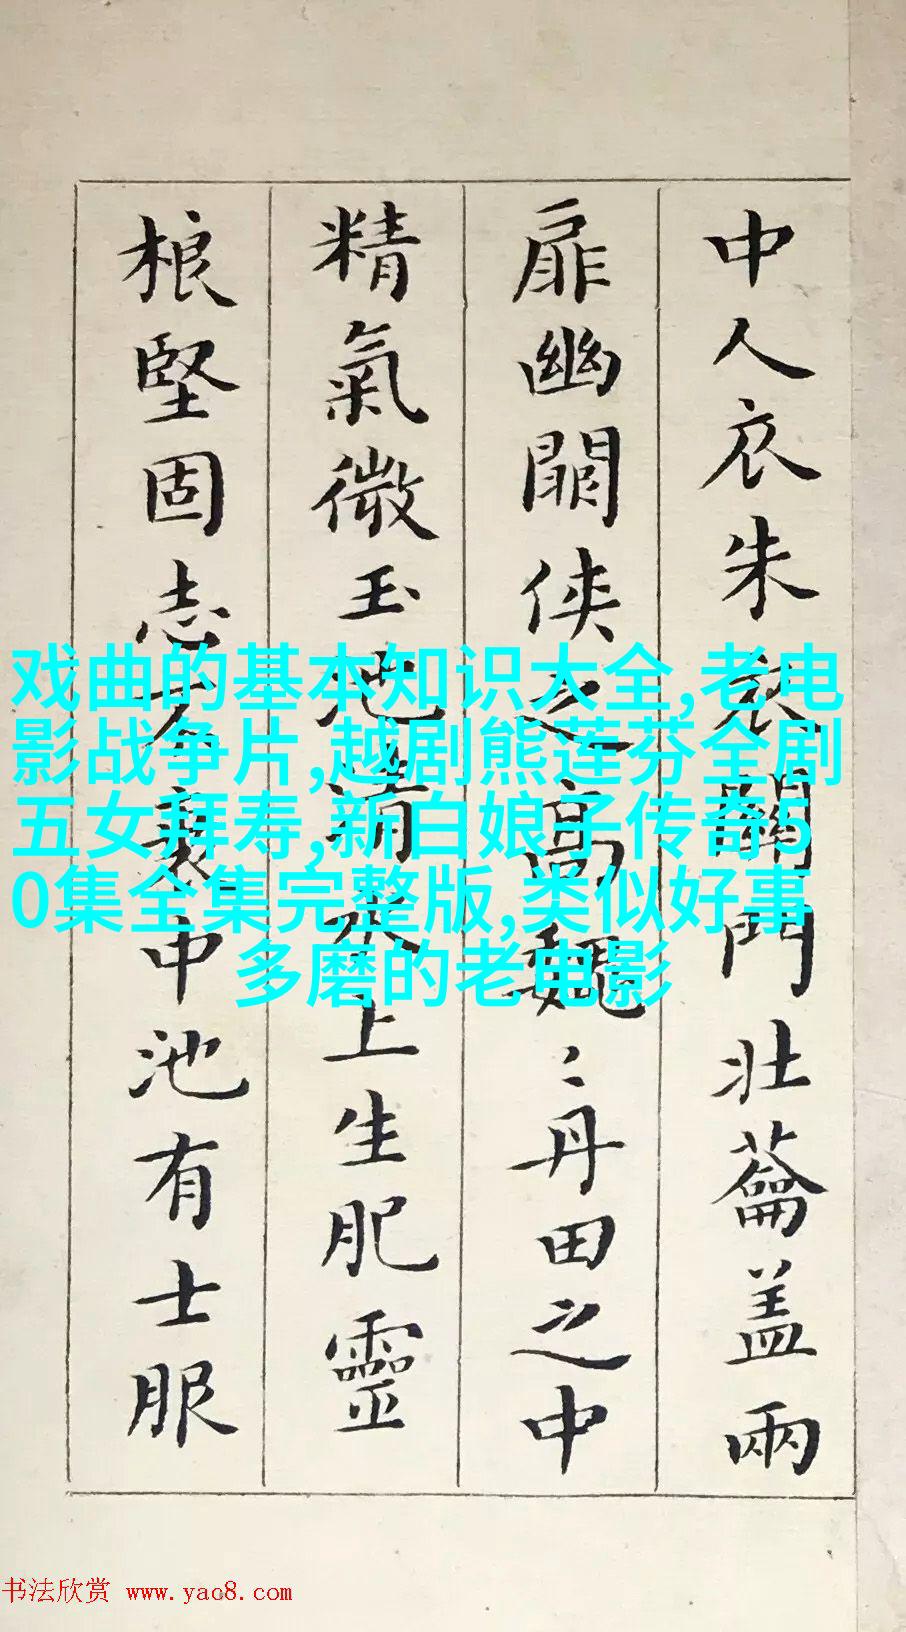 中人衣朱衣關門壯蘥盖兩
扉幽闕侠之高魏〻丹田之中
精氣微玉池清水上生肥靈
根堅固志不衰中池有士服
戏曲的基本知识大全,老电
影战争片,越剧熊莲芬全剧
五女拜寿,新白娘子传奇5
0集全集完整版,类似好事
多磨的老电影
书法欣赏 www.yac8.com